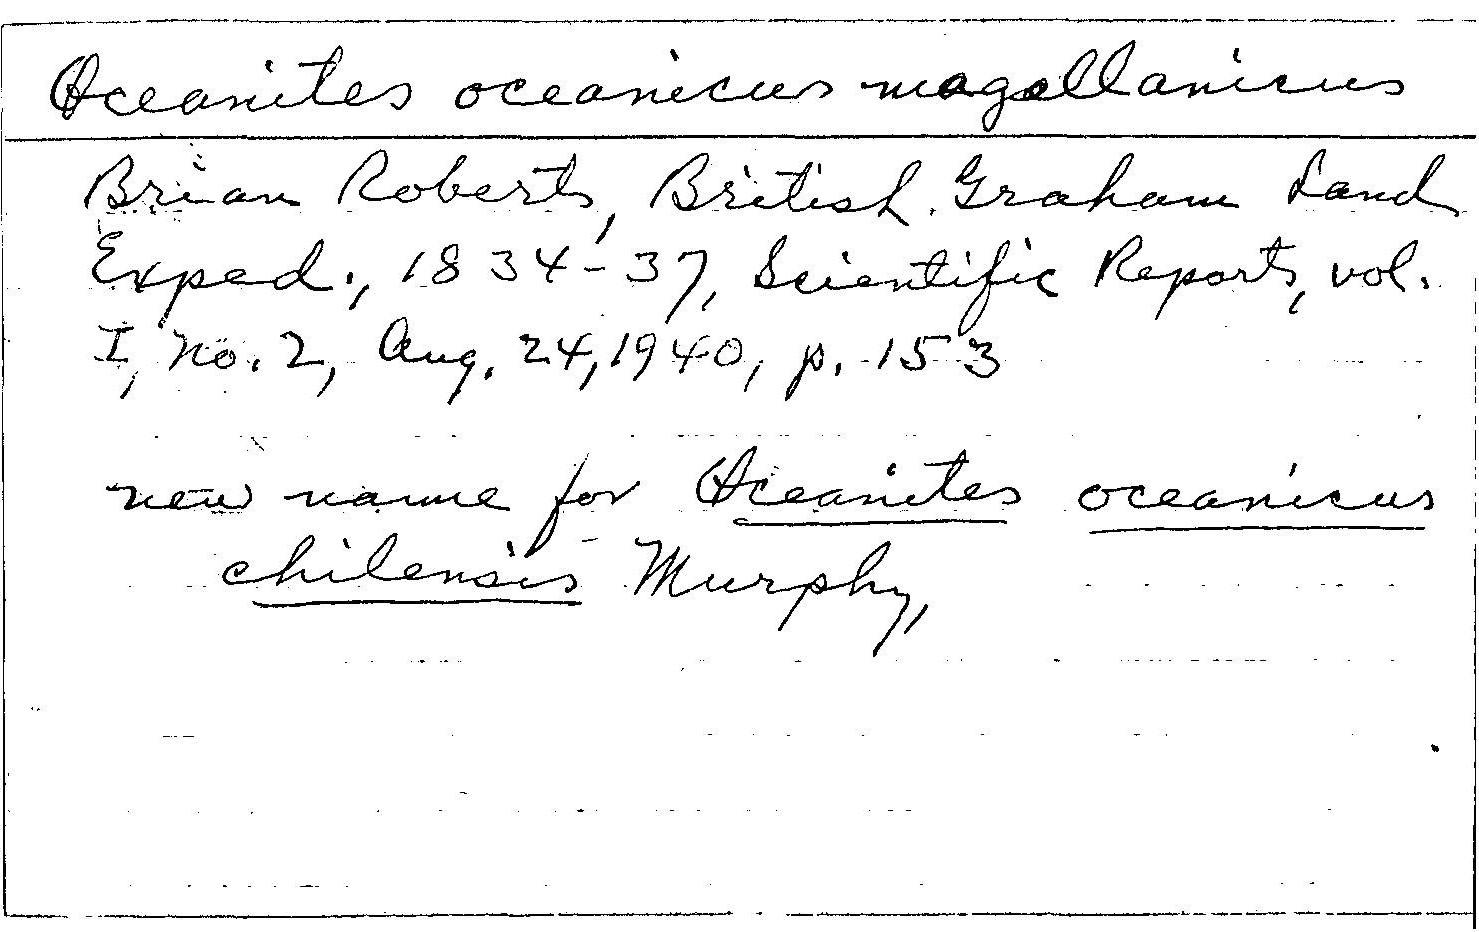 Oceanites oceanicus magellanicus
Brian Roberts, British Graham Land
Exped., 1834-37, Scientific Reports, vol.
I, no. 2, Aug. 24, 1940, p. 153
new name for Oceanites oceanicus
chilensis Murphy,